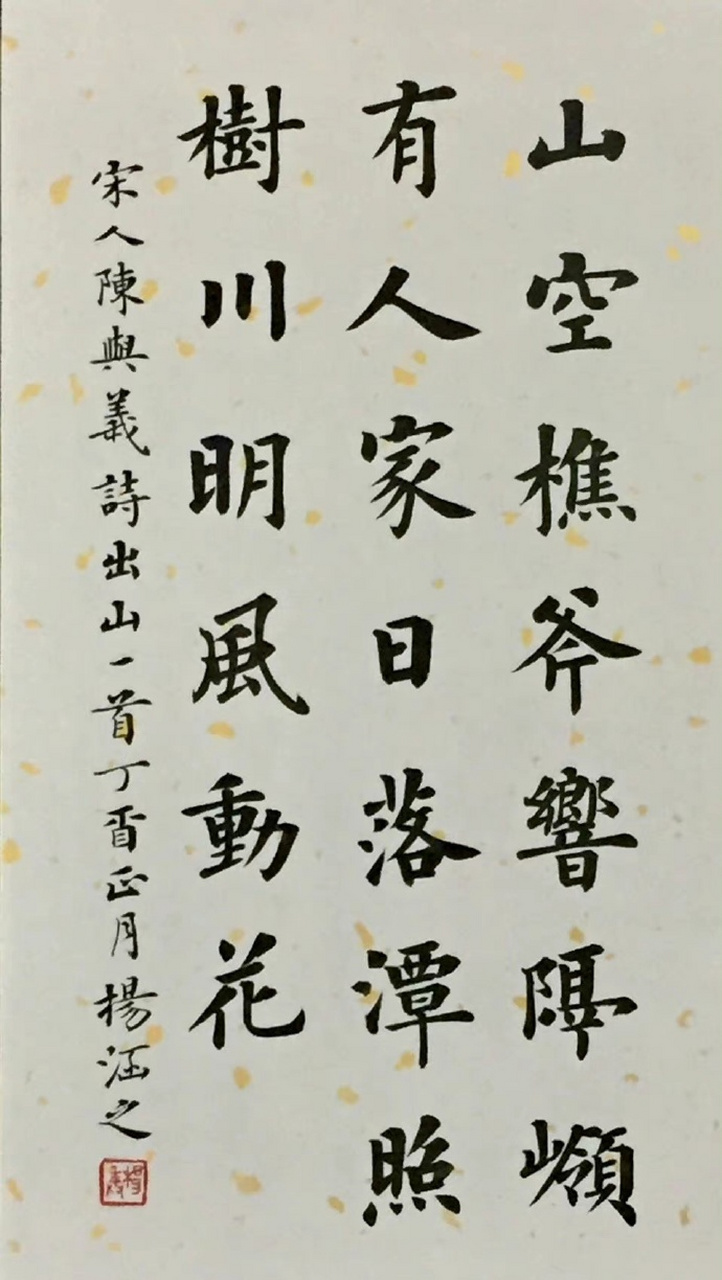 山空樵斧響隔嶺
有人家日落潭照
樹川明風動花
宋人陳與義詩出山一首丁酉正月楊涵之